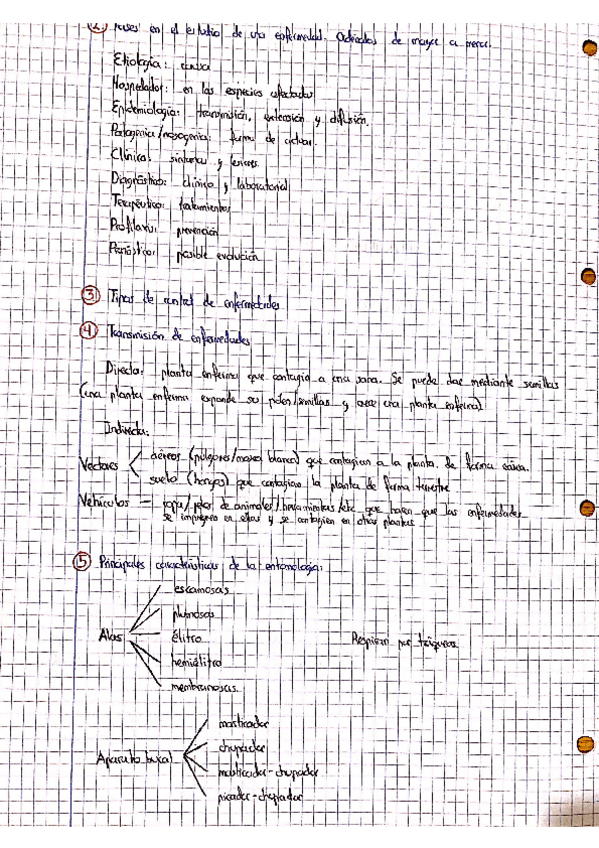 ② Fases en el estudio de una enfermedad. Ordenadas de mayor a menor.
Etiología: causa
Hospedador: en las especies afectadas
Epidemiología: transmisión, extensión y difusión.
Patogenia/mesogenia: forma de actuar.
Clínica: síntomas y lesiones.
Diagnóstico: clínico y laboratorial
Terapéutica: tratamientos
Profilaxis: prevención
Pronóstico: posible evolución
③ Tipos de control de enfermedades
④ Transmisión de enfermedades
Directa: planta enferma que contagia a una sana. Se puede dar mediante semillas
(una planta enferma expande su polen/semillas y crece otra planta enferma)
Indirecta:
Vectores
aéreos (pulgones/mosca blanca) que contagian a la planta de forma aérea.
suelo (hongos) que contagian la planta de forma terrestre
Vehículos — ropa/pelos de animales/herramientas/etc que hacen que las enfermedades
se impregnen en ellas y se contagien en otras plantas
⑤ Principales características de la entomología:
Alas
escamosas
plumosas
élitro
hemiélitro
membranosas.
Respiran por tráqueas
Aparato bucal
masticador
chupador
masticador-chupador
picador-chupador